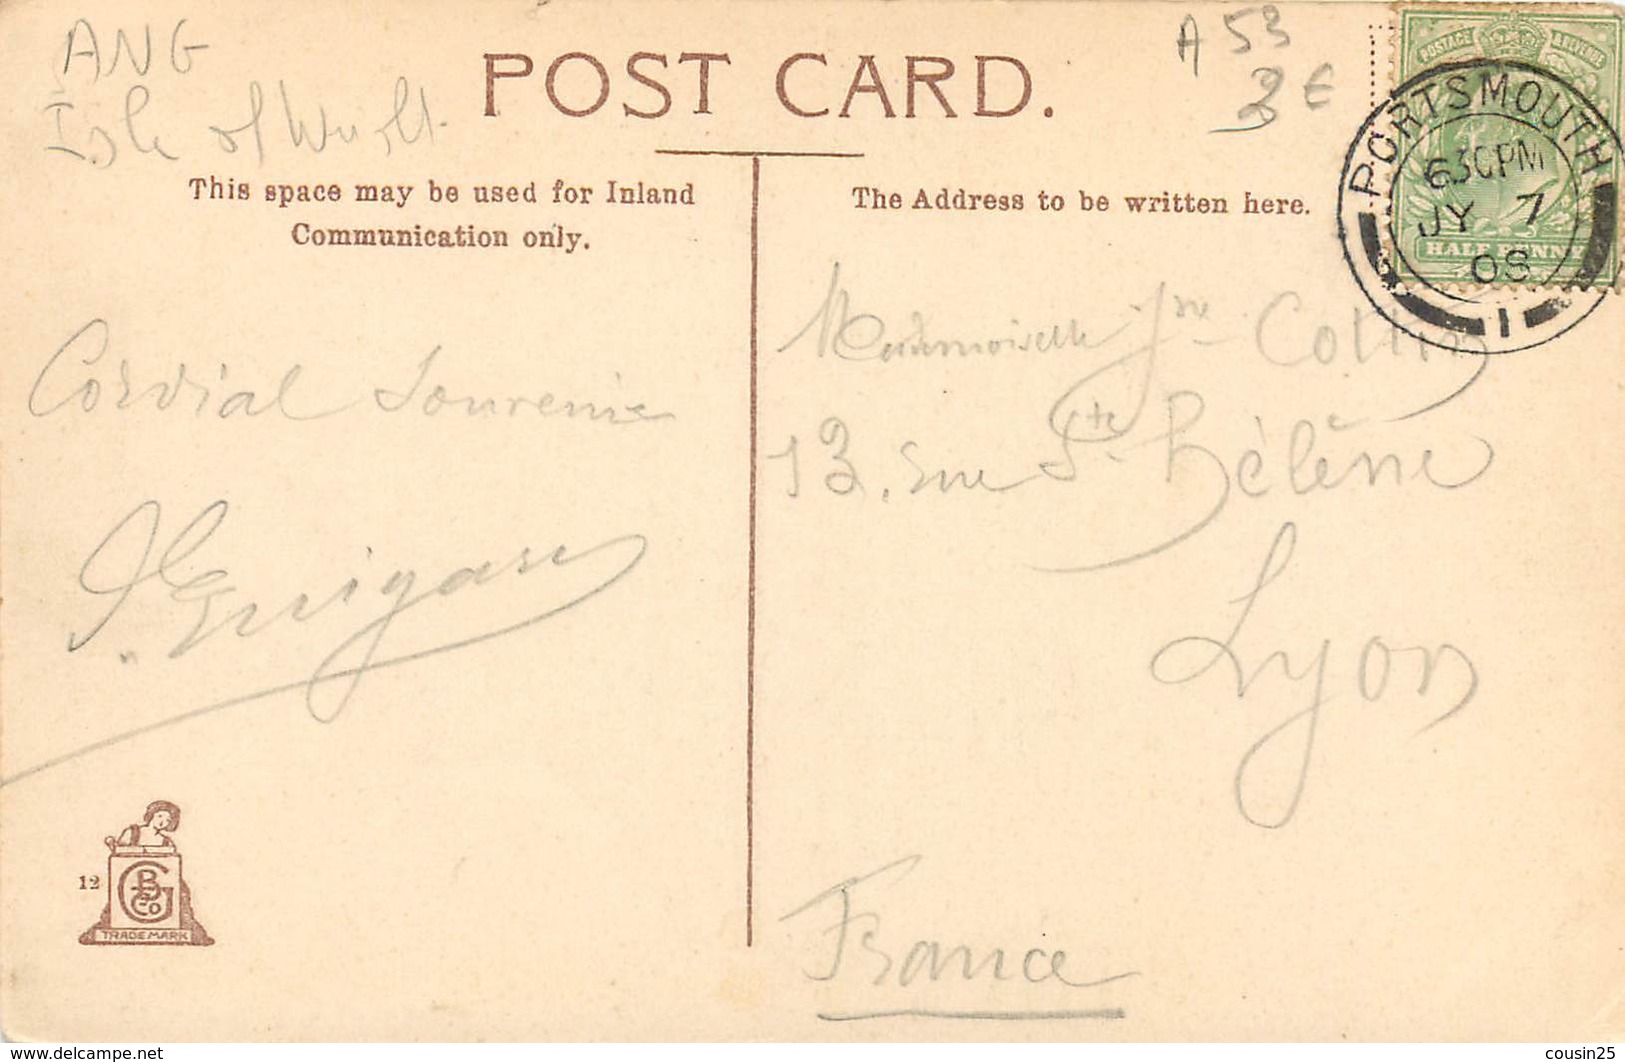 ANG
Isle of
POST CARD.
A 53
3 €
This space may be used for Inland
Communication only.
The Address to be written here.
POSTAGE & REVENUE
HALF PENNY
PORTSMOUTH
6.30PM
JY 7
08
1
Cordial Souvenir
Mademoiselle Jne Collin
13, rue Ste Hélène
Lyon
France
12
GB & Co
TRADE MARK
http://www.delcampe.net
cousin25